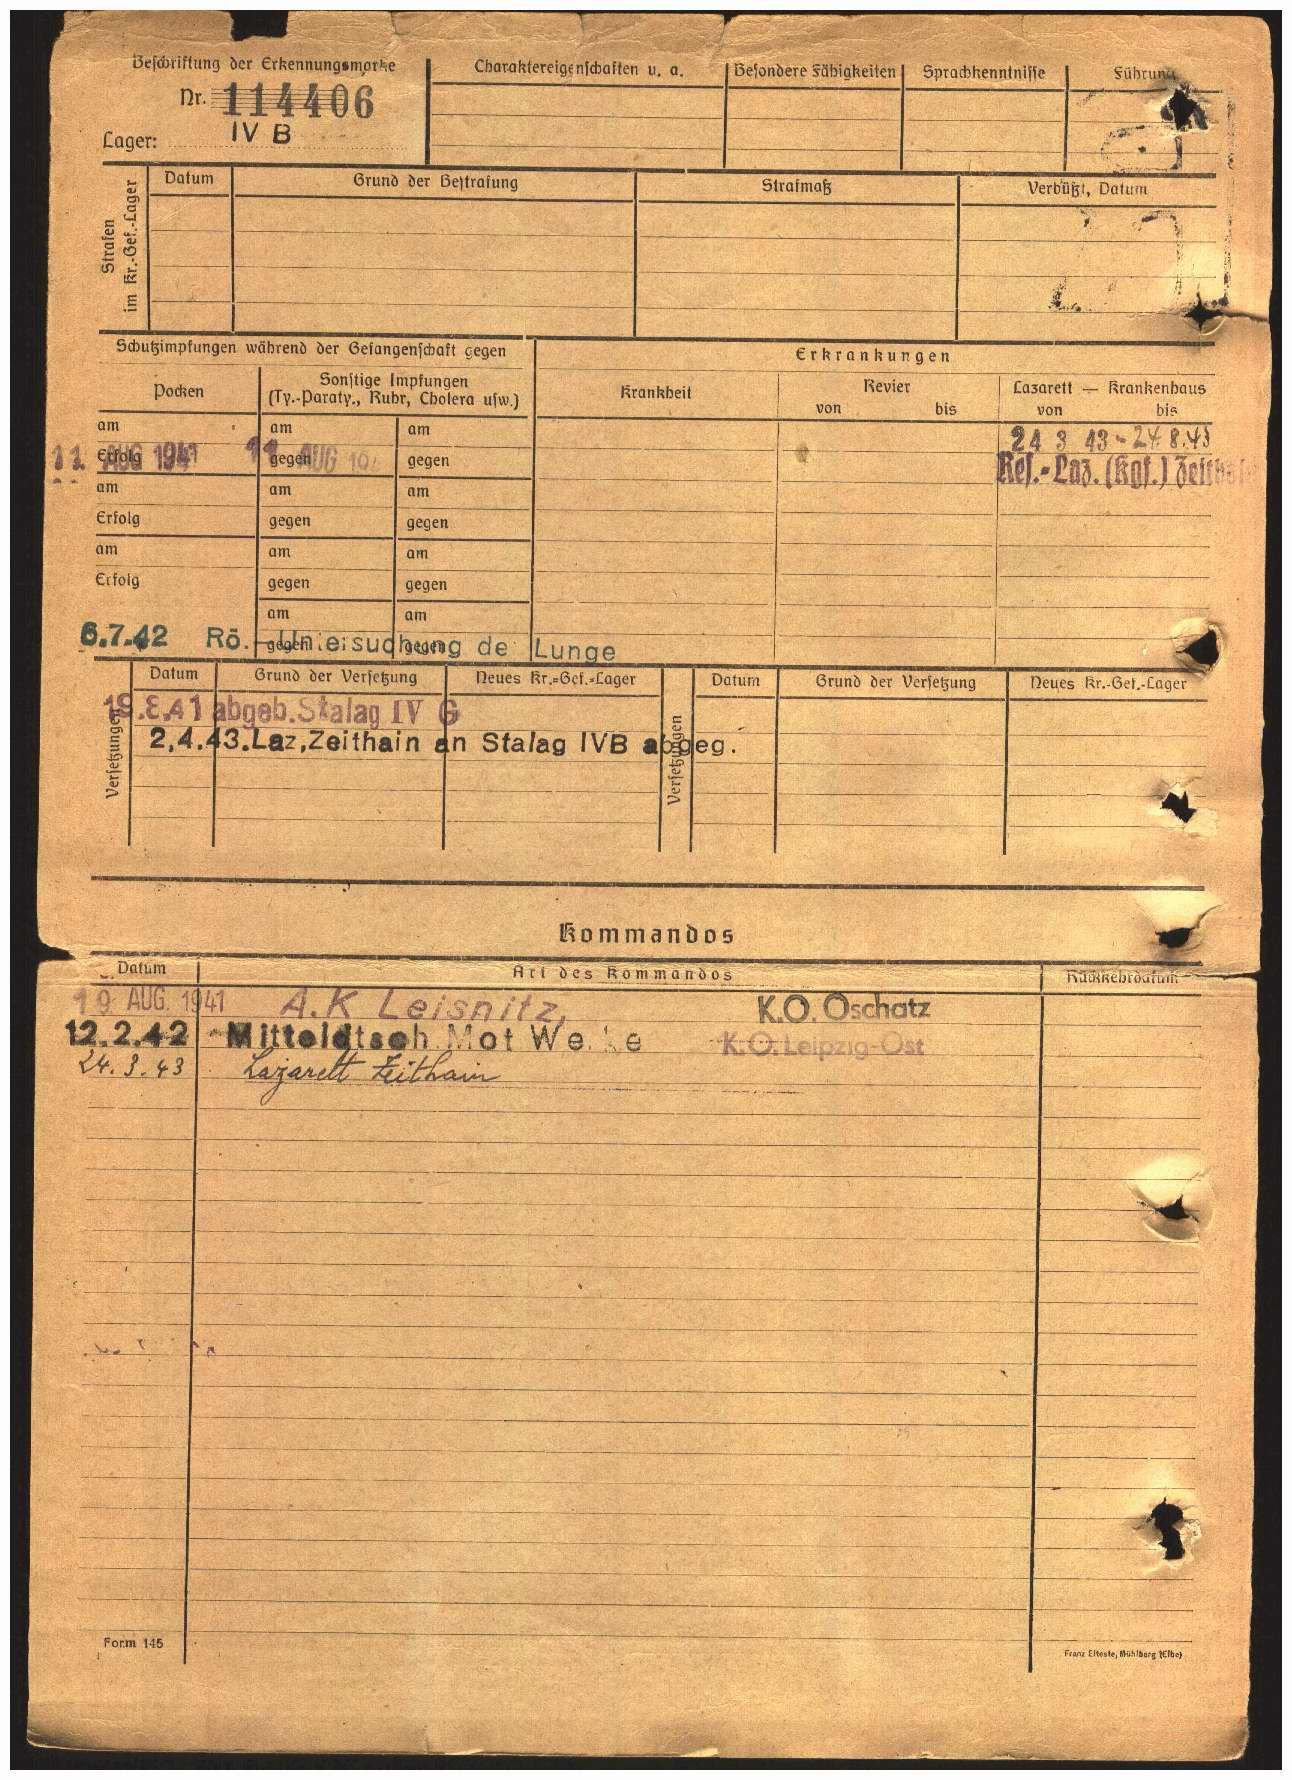 Beschriftung der Erkennungsmarke
Nr. 114406
Lager: IV B
Charaktereigenschaften u. a.
Besondere Fähigkeiten
Sprachkenntnisse
Führung
Strafen im Kr.-Gef.-Lager
Datum
Grund der Bestrafung
Strafmaß
Verbüßt, Datum
Schutzimpfungen während der Gefangenschaft gegen
Erkrankungen
Pocken
Sonstige Impfungen
(Ty.-Paraty., Ruhr, Cholera usw.)
Krankheit
Revier
von bis
Lazarett — Krankenhaus
von bis
am am am
24 3 43 - 24.8.43
Erfolg gegen gegen
11. AUG 1941 11 AUG 194
Res.-Laz. (Kgf.)
am am am
Erfolg gegen gegen
am am am
Erfolg gegen gegen
am am
gegen gegen
6.7.42 Rö.-Untersuchung de Lunge
Versetzungen
Datum
Grund der Versetzung
Neues Kr.-Gef.-Lager
Versetzungen
Datum
Grund der Versetzung
Neues Kr.-Gef.-Lager
19.8.41 abgeb. Stalag IV G
2,4.43.Laz,Zeithain an Stalag IVB abgeg.
Kommandos
Datum
Art des Kommandos
Rückkehrdatum
19 AUG. 1941 A.K Leisnitz, K.O. Oschatz
12.2.42 Mitteldtsch. Mot We ke K.O. Leipzig-Ost
24.3.43 Lazarett Zeithain
Form 145
Franz Elteste, Mühlberg (Elbe)